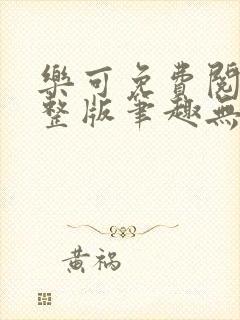 樂可免費閱
整版筆趣無
黃禍